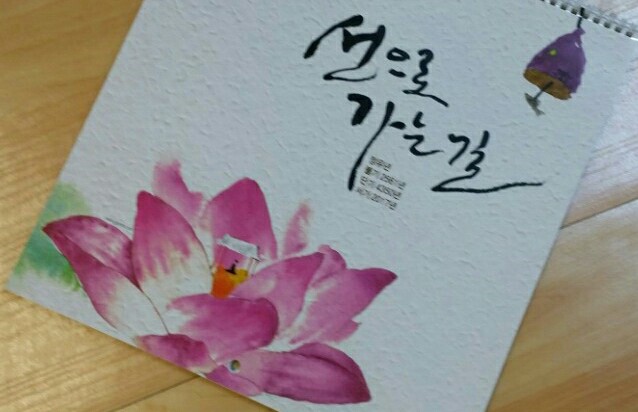 선으로
가는길
정유년
불기 2561년
단기 4350년
서기 2017년